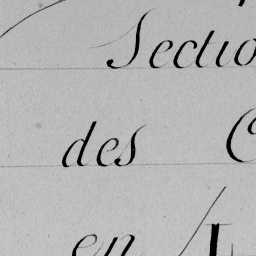 Sectio
des C
en